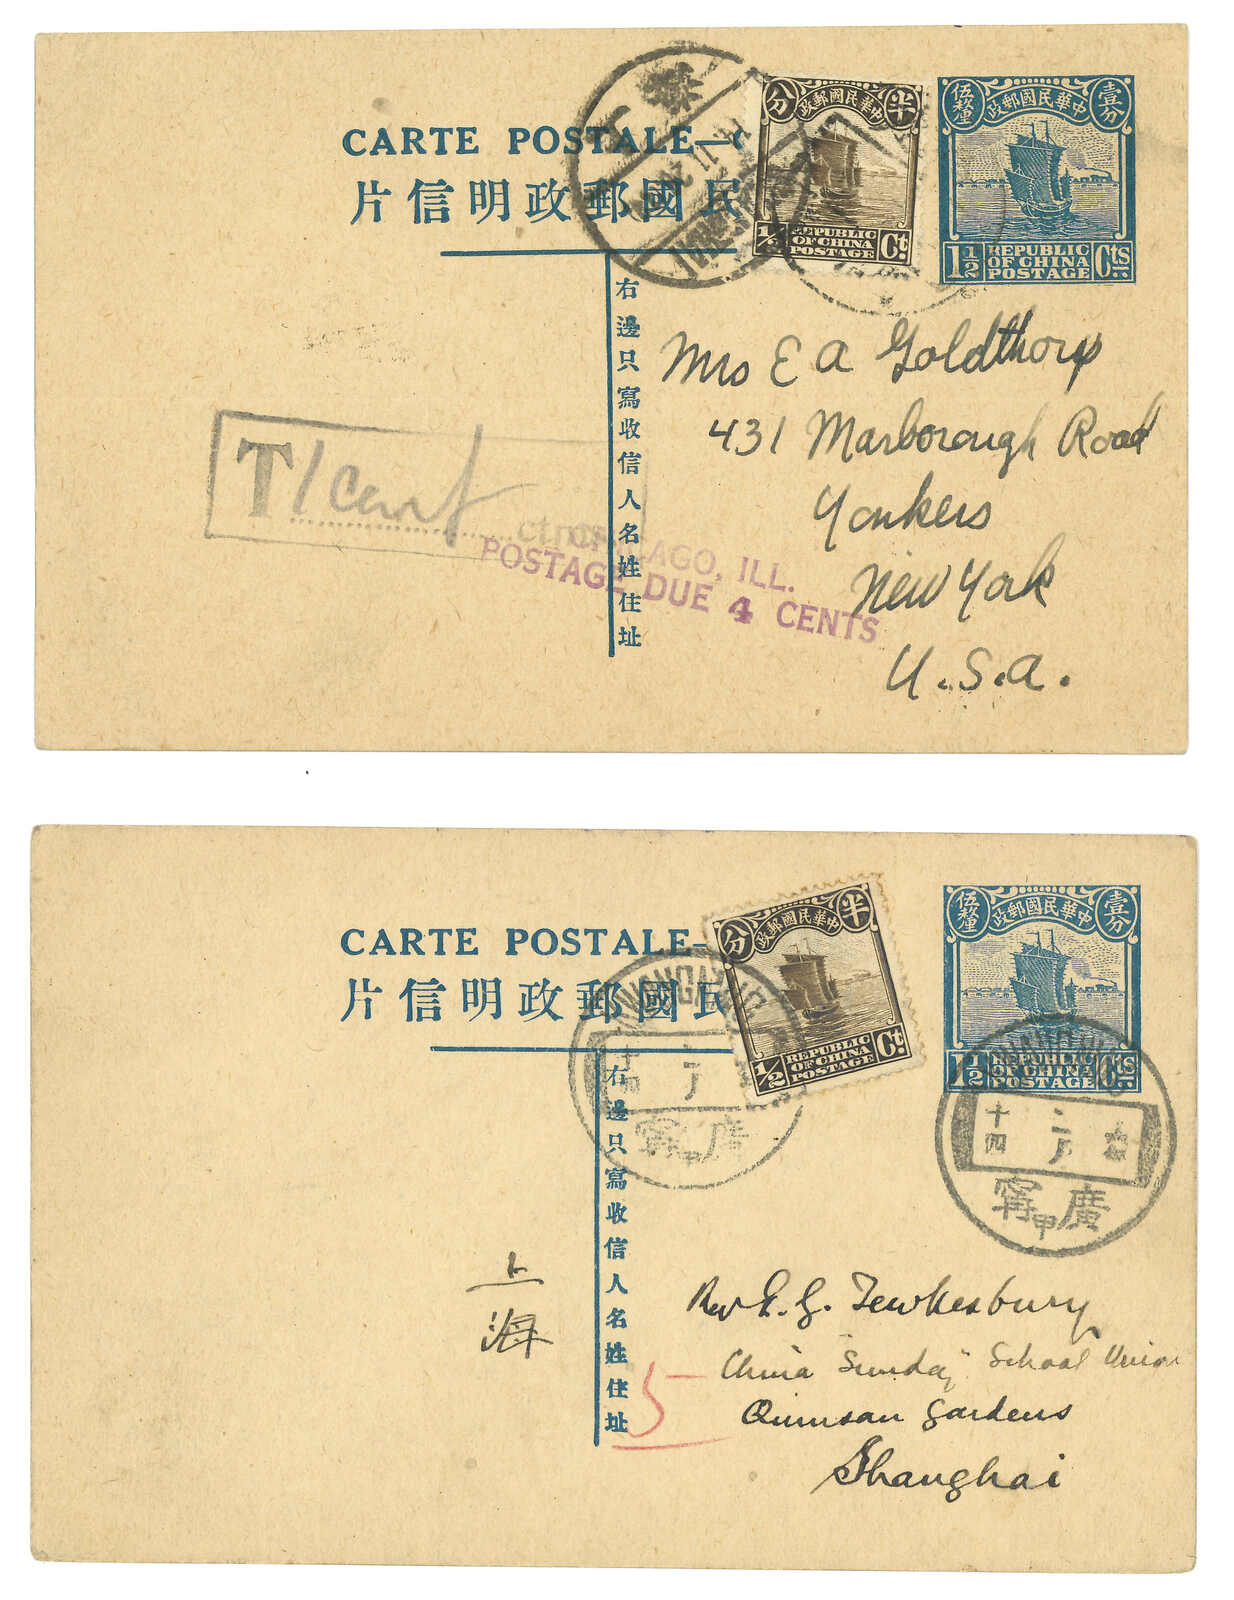 CARTE POSTALE—
片信明政郵國民
分 政郵國民華中 半
1/2 REPUBLIC OF CHINA POSTAGE Ct.
伍釐 政郵國民華中 壹分
1 1/2 REPUBLIC OF CHINA POSTAGE Cts
右邊只寫收信人名姓住址
Mrs E A Goldthorp
431 Marborough Road
Yonkers
New York
U.S.A.
T 1 cent
POSTAGE DUE 4 CENTS
CARTE POSTALE—
片信明政郵國民
分 政郵國民華中 半
1/2 REPUBLIC OF CHINA POSTAGE Ct.
伍釐 政郵國民華中 壹分
1 1/2 REPUBLIC OF CHINA POSTAGE Cts
右邊只寫收信人名姓住址
甯甲廣
十四
甯甲廣
上海
5
Rev E. G. Tewkesbury
China "Sunday" School Union
Quinsan Gardens
Shanghai